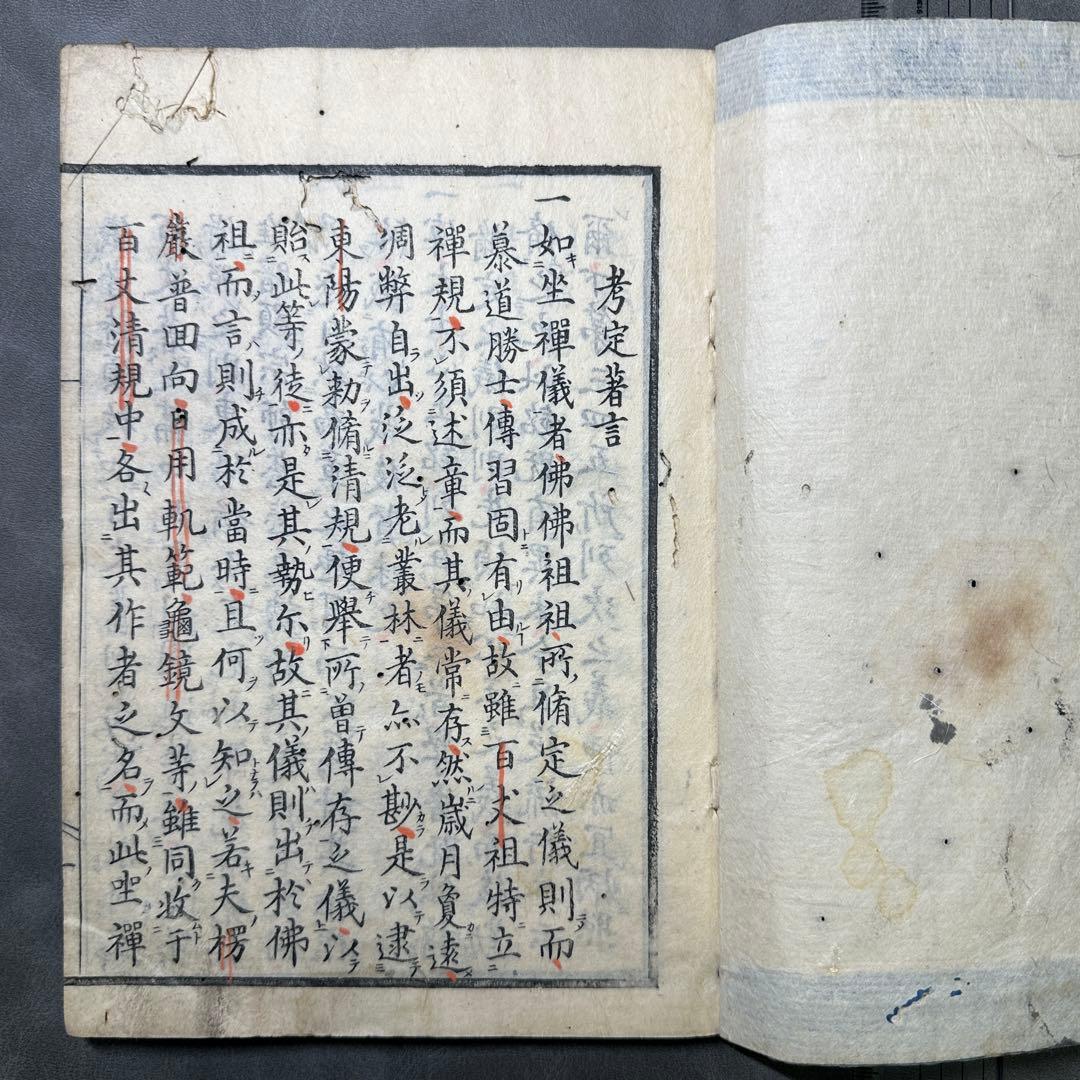 考定著言
一如坐禪儀者佛佛祖祖所脩定之儀則而
慕道勝士傳習固有由故雖百丈祖特立
禪規不須述章而其儀常存然歳月敻遠
凋弊自出泛泛老叢林者亦不尠是以逮
東陽蒙勅脩清規便舉所曽傳存之儀以
貽此等徒亦是其勢尓故其儀則出於佛
祖而言則成於當時且何以知之若夫楞
嚴普回向日用軌範龜鏡文等雖同收于
百丈清規中各出其作者之名而此坐禪